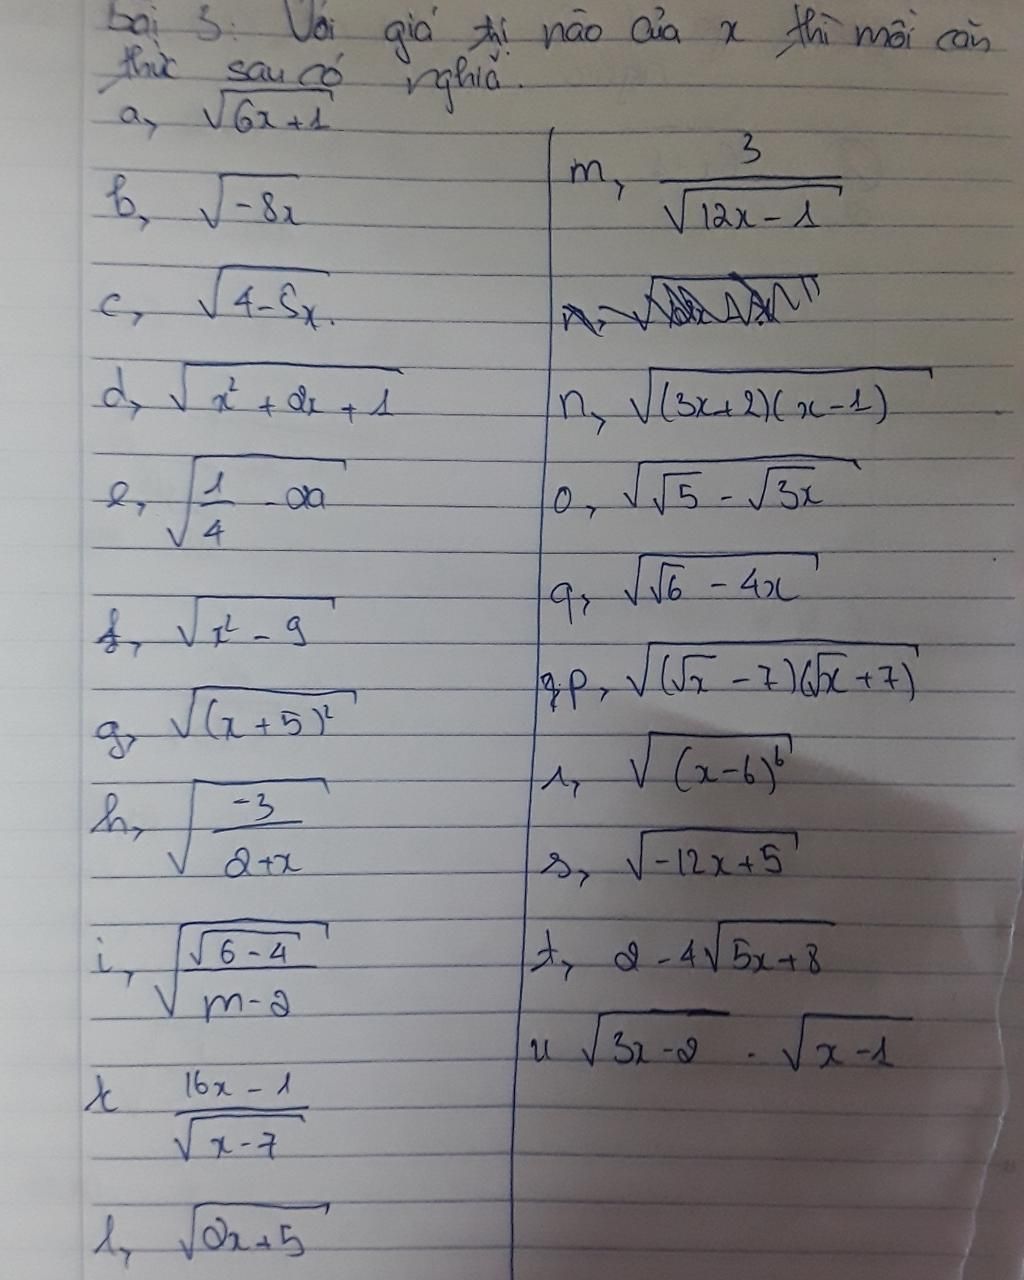 Bài 3: Với giá trị nào của x thì mỗi căn
thức sau có nghĩa.
a, √(6x+1)
b, √(-8x)
c, √(4-5x).
d, √(x² + 2x + 1)
e, √(1/4 - 2a)
f, √(x² - 9)
g, √((x+5)²)
h, √(-3/(2+x))
i, √(√(6-4)/(m-2))
k (16x - 1)/√(x-7)
l, √(2x+5)
m, 3/√(12x-1)
n, √((3x+2)(x-1))
o, √(√5 - √3x)
q, √(√6 - 4x)
p, √((√x - 7)(√x + 7))
r, √((x-6)⁶)
s, √(-12x+5)
t, 2 - 4√(5x+8)
u √(3x-2) . √(x-1)